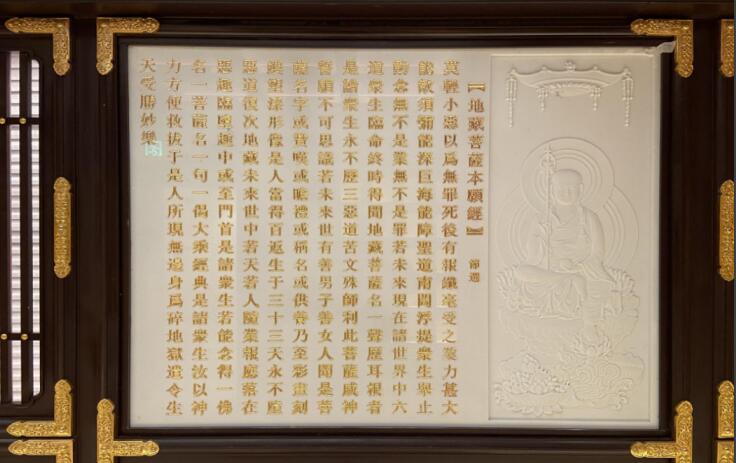 【地藏菩薩本願經】 節選
莫輕小惡以爲無罪死後有報纖毫受之業力甚大
能敵須彌能深巨海能障聖道南閻浮提衆生舉止
動念無不是業無不是罪若未來現在諸世界中六
道衆生臨命終時得聞地藏菩薩名一聲歷耳根者
是諸衆生永不歷三惡道苦文殊師利此菩薩威神
誓願不可思議若未來世有善男子善女人聞是菩
薩名字或贊嘆或瞻禮或稱名或供養乃至彩畫刻
鏤塑漆形像是人當得百返生于三十三天永不墮
惡道復次地藏未來世中若天若人隨業報應落在
惡趣臨墮趣中或至門首是諸衆生若能念得一佛
名一菩薩名一句一偈大乘經典是諸衆生汝以神
力方便救拔于是人所現無邊身爲碎地獄遣令生
天受勝妙樂